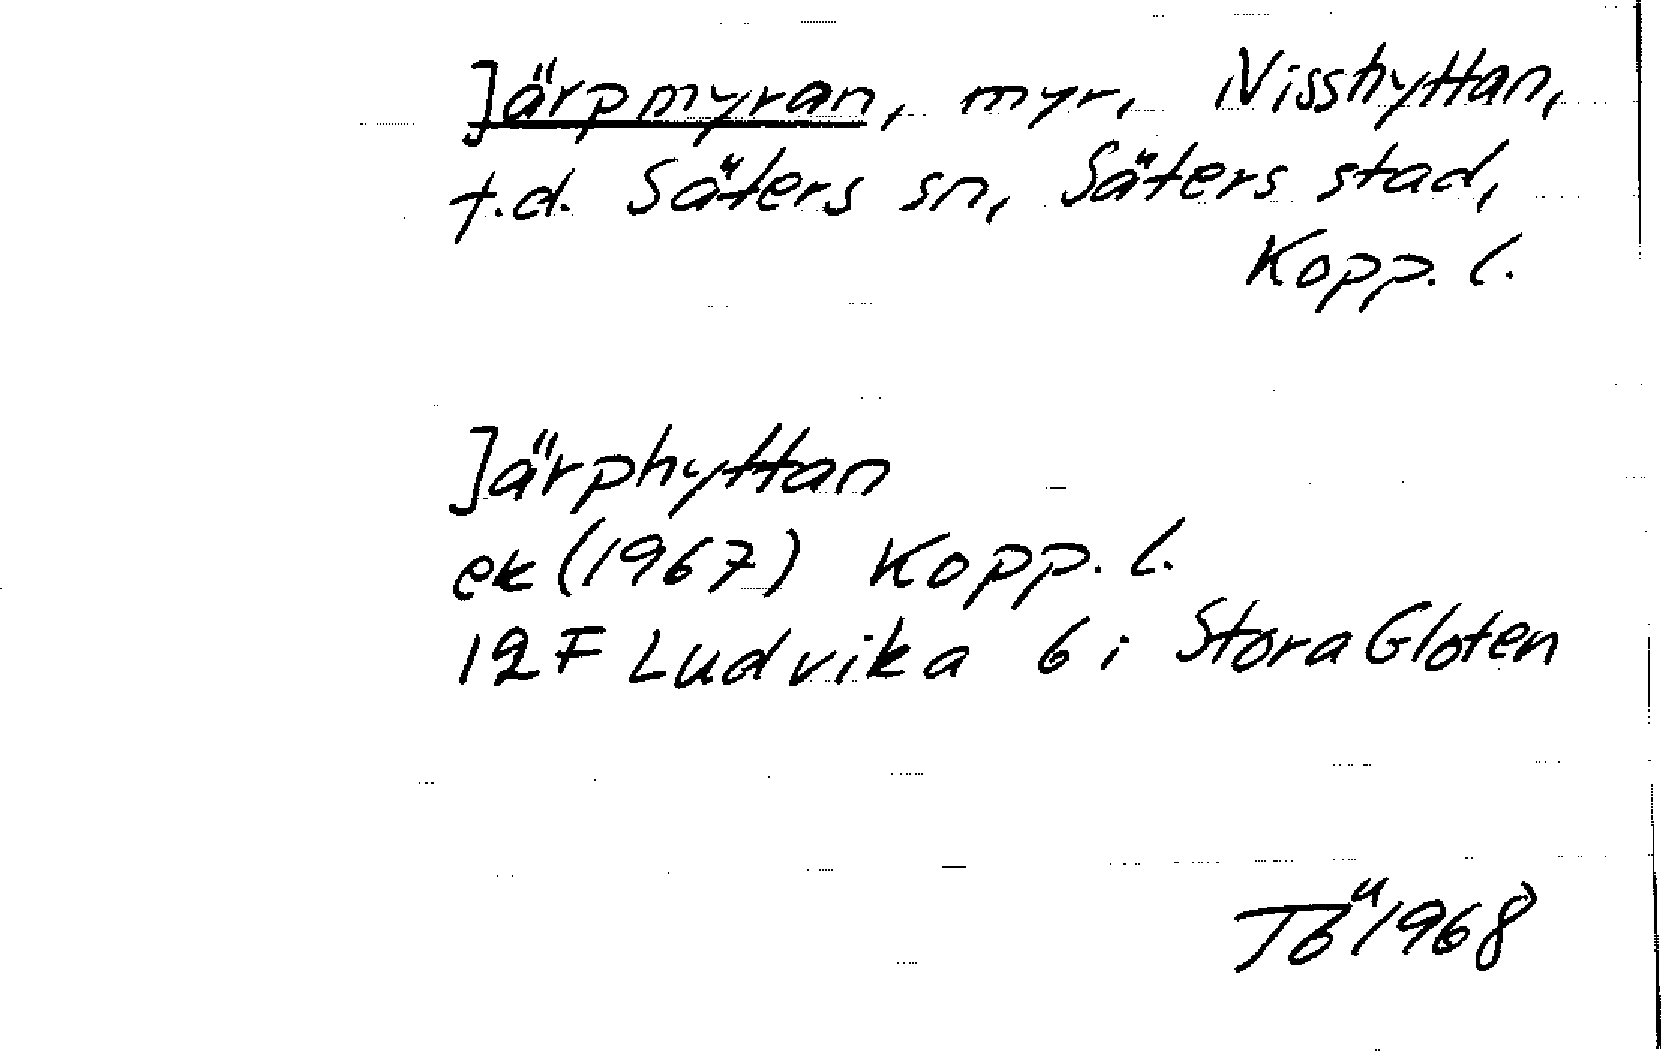 Järpmyran, myr, Nisshyttan,
t.d. Säters sn, Säters stad,
Kopp. l.
Järphyttan
ek (1967) Kopp. l.
12F Ludvika 6 i Stora Gloten
Tö 1968